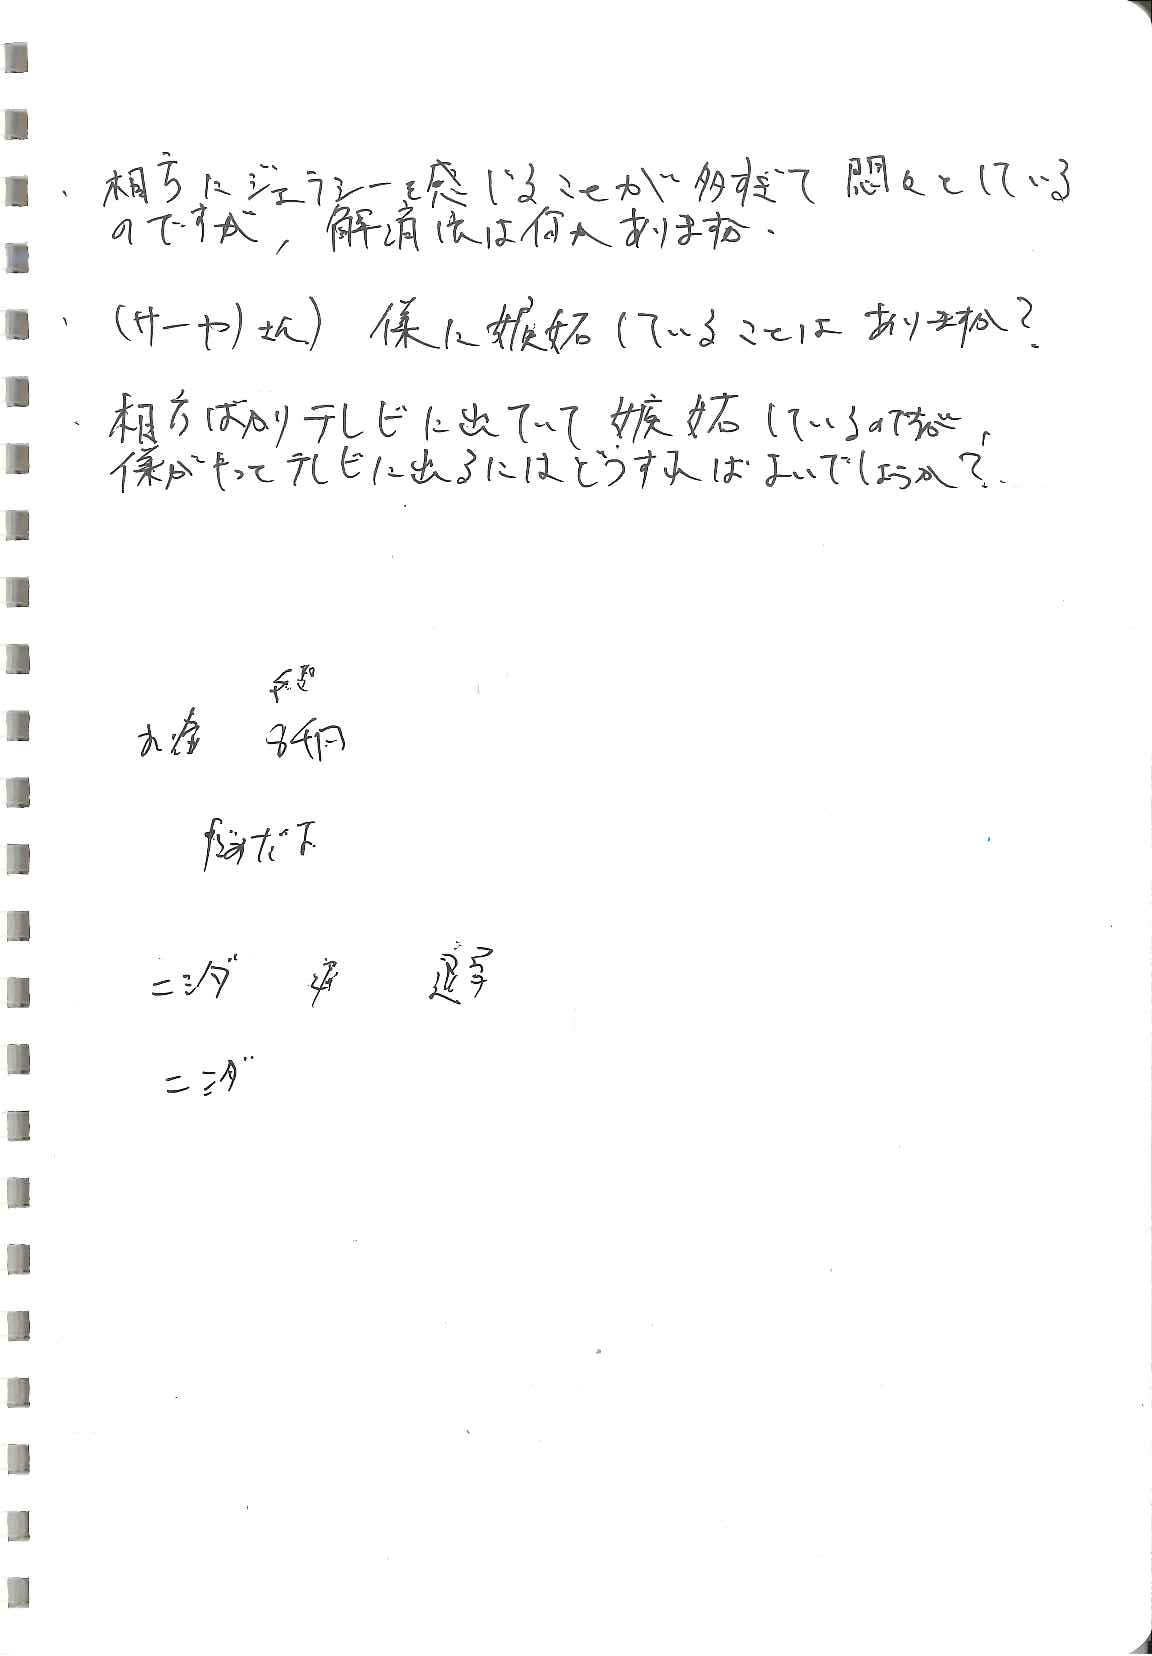 、相方にジェラシーを感じることが多すぎて 悶々としている
のですが, 解消法は何かありますか.
、(サーヤ)さん) 様に嫉妬していることは ありますか?
、相方ばかりテレビに出ていて 嫉妬しているのですが,
様がやってテレビに出るにはどうすればよいでしょうか?
お金 8千円
だよ
ニシダ 退学
ニシダ